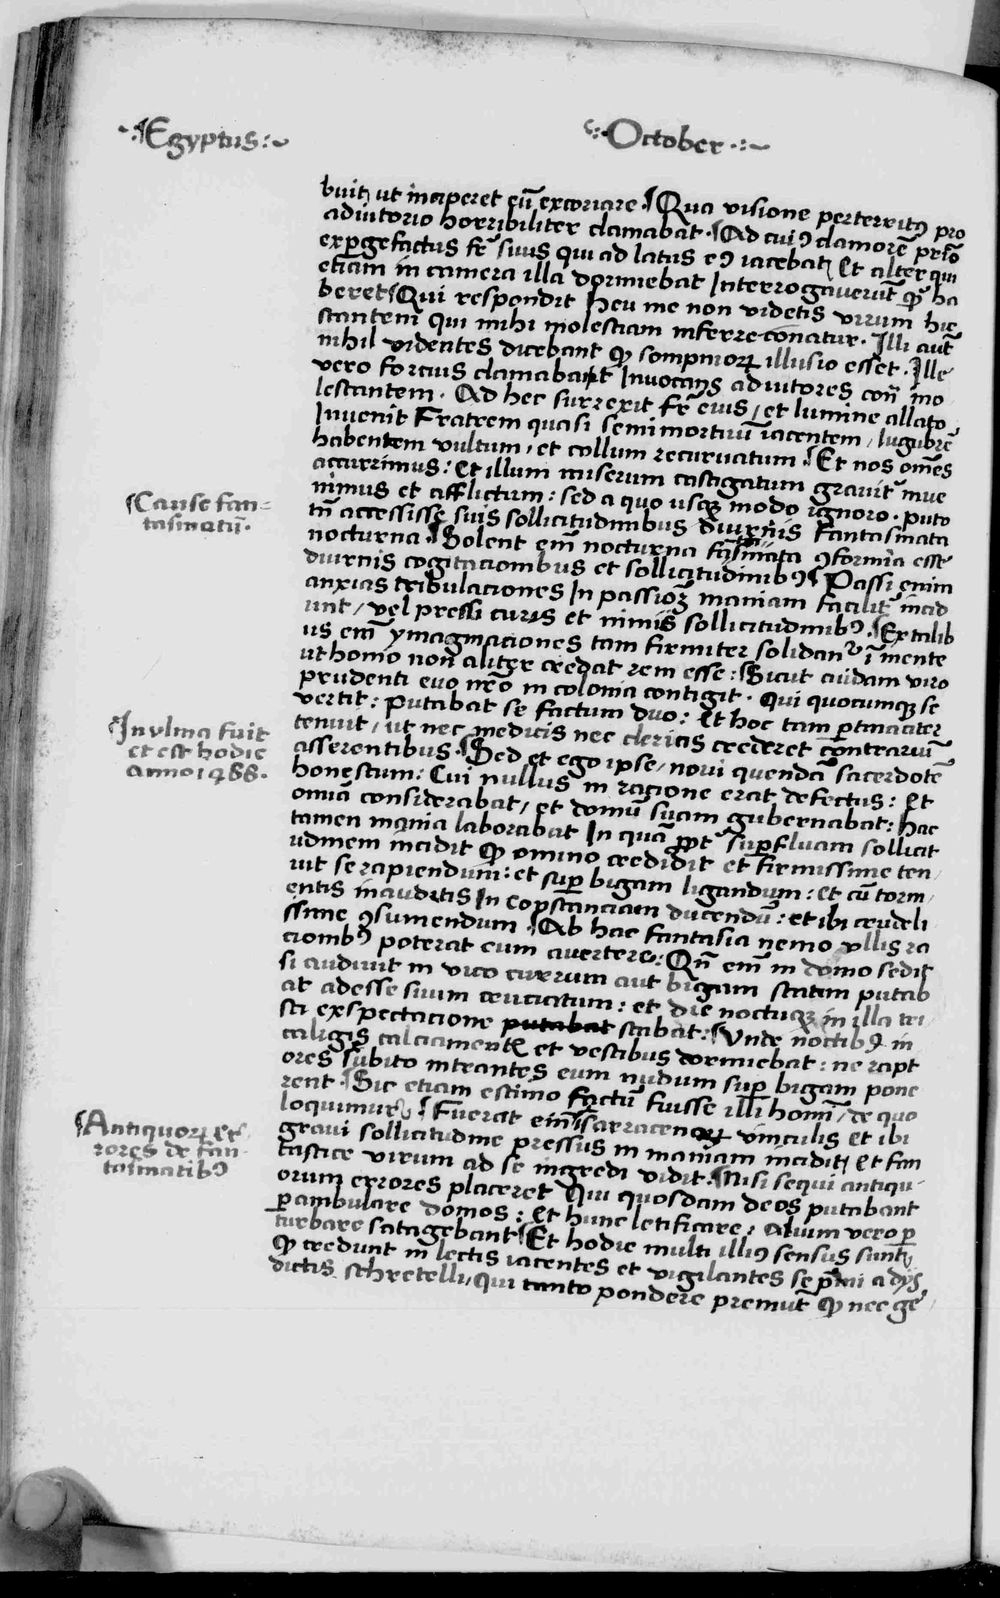 ·:Egyptus:~
·:October·:~
buit ut inciperet eū excoriare · Qua visione perterritꝰ pro
adiutorio horribiliter clamabat · Ad cuiꝰ clamorē primo
expergefactus fr̄ suus qui ad latus eꝰ iacebat Et alter qui
etiam in camera illa dormiebat Interrogaverūt qͩ ha
beret Qui respondit Heu me non videtis virum hic
stantem qui mihi molestiam inferre conatur · Illi aut̄
nihil videntes dicebant ꝙ sompniorꝝ illusio esset · Ille
vero forcius clamabat Invocans adiutores con̄ mo
lestantem · Ad hec surrexit fr̄ eius, et lumine allato,
Invenit Fratrem quasi semimortuū iacentem, lugubrē
habentem vultum, et collum recurvatum · Et nos om̄es
accurrimus: et illum miserum castigatum gravit̄ inve
nimus et afflictum: sed a quo usqꝫ modo ignoro · puto
tn̄ accessisse suis sollicitudinibus diurnis Fantasmata
nocturna · Solent em̄ nocturna fāsmata ꝯformia esse
diurnis cogitacionibus et sollicitudinibꝰ Passi enim
anxias tribulaciones In passioꝫ maniam facilit̄ incid
unt, vel pressi curis et nimiis sollicitudinibꝰ · Ex talib
us em̄ ymaginaciones tam firmiter solidant̄ ī mente
ut homo non aliter credat rem esse: Sicut cuidam viro
prudenti evo nr̄o in colonia contigit · Qui quocumqꝫ se
vertit: putabat se factum duo: et hoc tam pertinaciter
tenuit, ut nec medicis nec clericis crederet contrariū
asserentibus · Sed et ego ipse, novi quendā sacerdotē
honestum: Cui nullus in ragione erat defectus: et
omia considerabat, et domū suam gubernabat: hac
tamen mania laborabat In quā ꝓpt̄ superfluam sollicit
udinem incidit ꝙ omino credidit et firmissime ten,
uit se rapiendum: et super bigam ligandum: et cū torm,
entis inauditis In Constanciam ducendū: et ibi crudeli
ssime ꝯsumendum · Ab hac fantasia nemo ullis ra
cionibꝰ poterat eum avertere: Qn̄ em̄ in domo sedit
si audiuit in vico currum aut bigam statim putab
at adesse suum cruciatum: et die noctuqꝫ in illa tri
sti exspectacione putabat stabat: Unde noctibꝰ in
caligis calciamentꝭ et vestibus dormiebat: ne rapt
ores subito intrantes eum nudum super bigam pone
rent · Sic etiam estimo factū fuisse illi homī, de quo
loquimur Fuerat em̄ sarracenorꝝ vinculis et ibi
gravi sollicitudine pressus in maniam incidit Et fan
tastice virum ad se ingredi vidit · Nisi sequi antiqu-
orum errores placeret Qui quosdam deos putabant
perambulare domos: et hunc letificare, Alium vero per
turbare satagebant Et hodie multi illiꝰ sensus sunt
ꝙ credunt in lectis iacentes et vigilantes se p̄mi a dijs
dictis schretelli, qui tanto pondere premūt ꝙ nec ge,
Cause fan-
tasmatū·
In ulma fuit
et est hodie
Anno 1488·
Antiquorꝝ er
rores de fan-
tasmatibꝰ